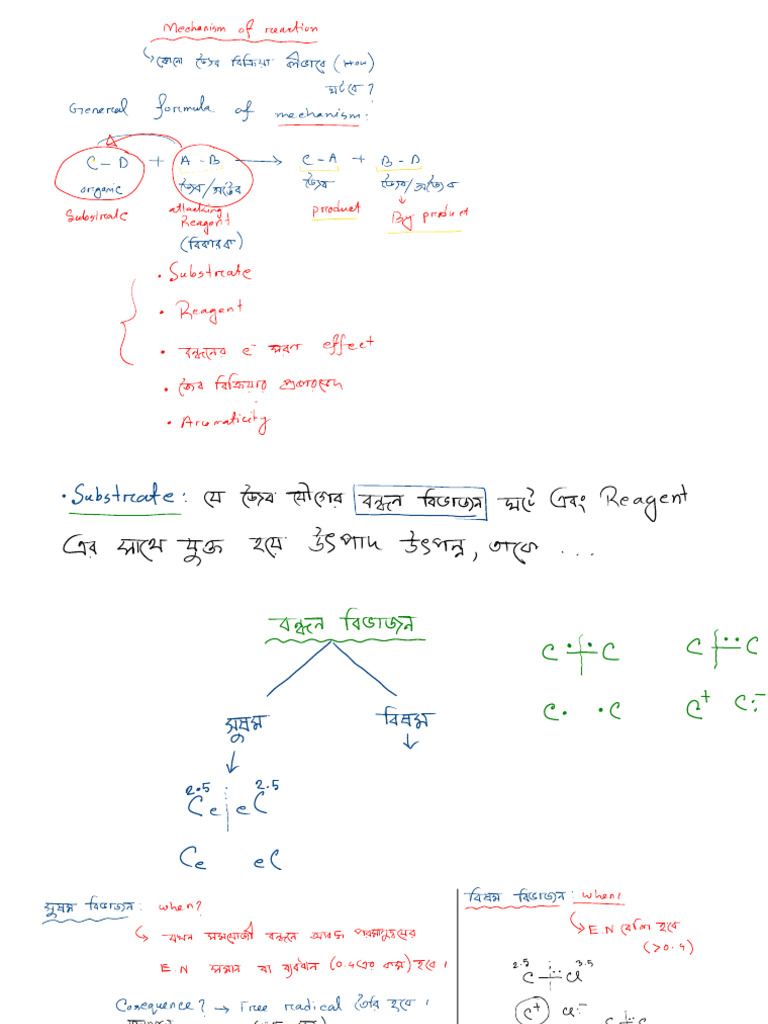 Mechanism of reaction
কোনো জৈব বিক্রিয়া কীভাবে (How)
ঘটবে?
General formula of mechanism:
C-D + A-B → C-A + B-D
organic জৈব/অজৈব জৈব জৈব/অজৈব
Substrate attacking Reagent product By product
(বিকারক)
• Substrate
• Reagent
• বন্ধনের e⁻ সরণ effect
• জৈব বিক্রিয়ার প্রকারভেদ
• Aromaticity
• Substrate: যে জৈব যৌগের বন্ধন বিভাজন ঘটে এবং Reagent
এর সাথে যুক্ত হয়ে উৎপাদ উৎপন্ন, তাকে ...
বন্ধন বিভাজন
C · · C C : C
C· ·C C⁺ C:⁻
সুষম বিষম
2.5 2.5
Ce eC
Ce eC
সুষম বিভাজন: when?
যখন সমযোজী বন্ধনে আবদ্ধ পরমাণুদ্বয়ের
E.N সমান বা ব্যবধান (0.4 এর কম) হবে।
Consequence? → Free radical তৈরি হবে।
বিষম বিভাজন: when?
E.N বেশি হবে
(>0.4)
2.5 3.5
C : Cl
C⁺ Cl:⁻